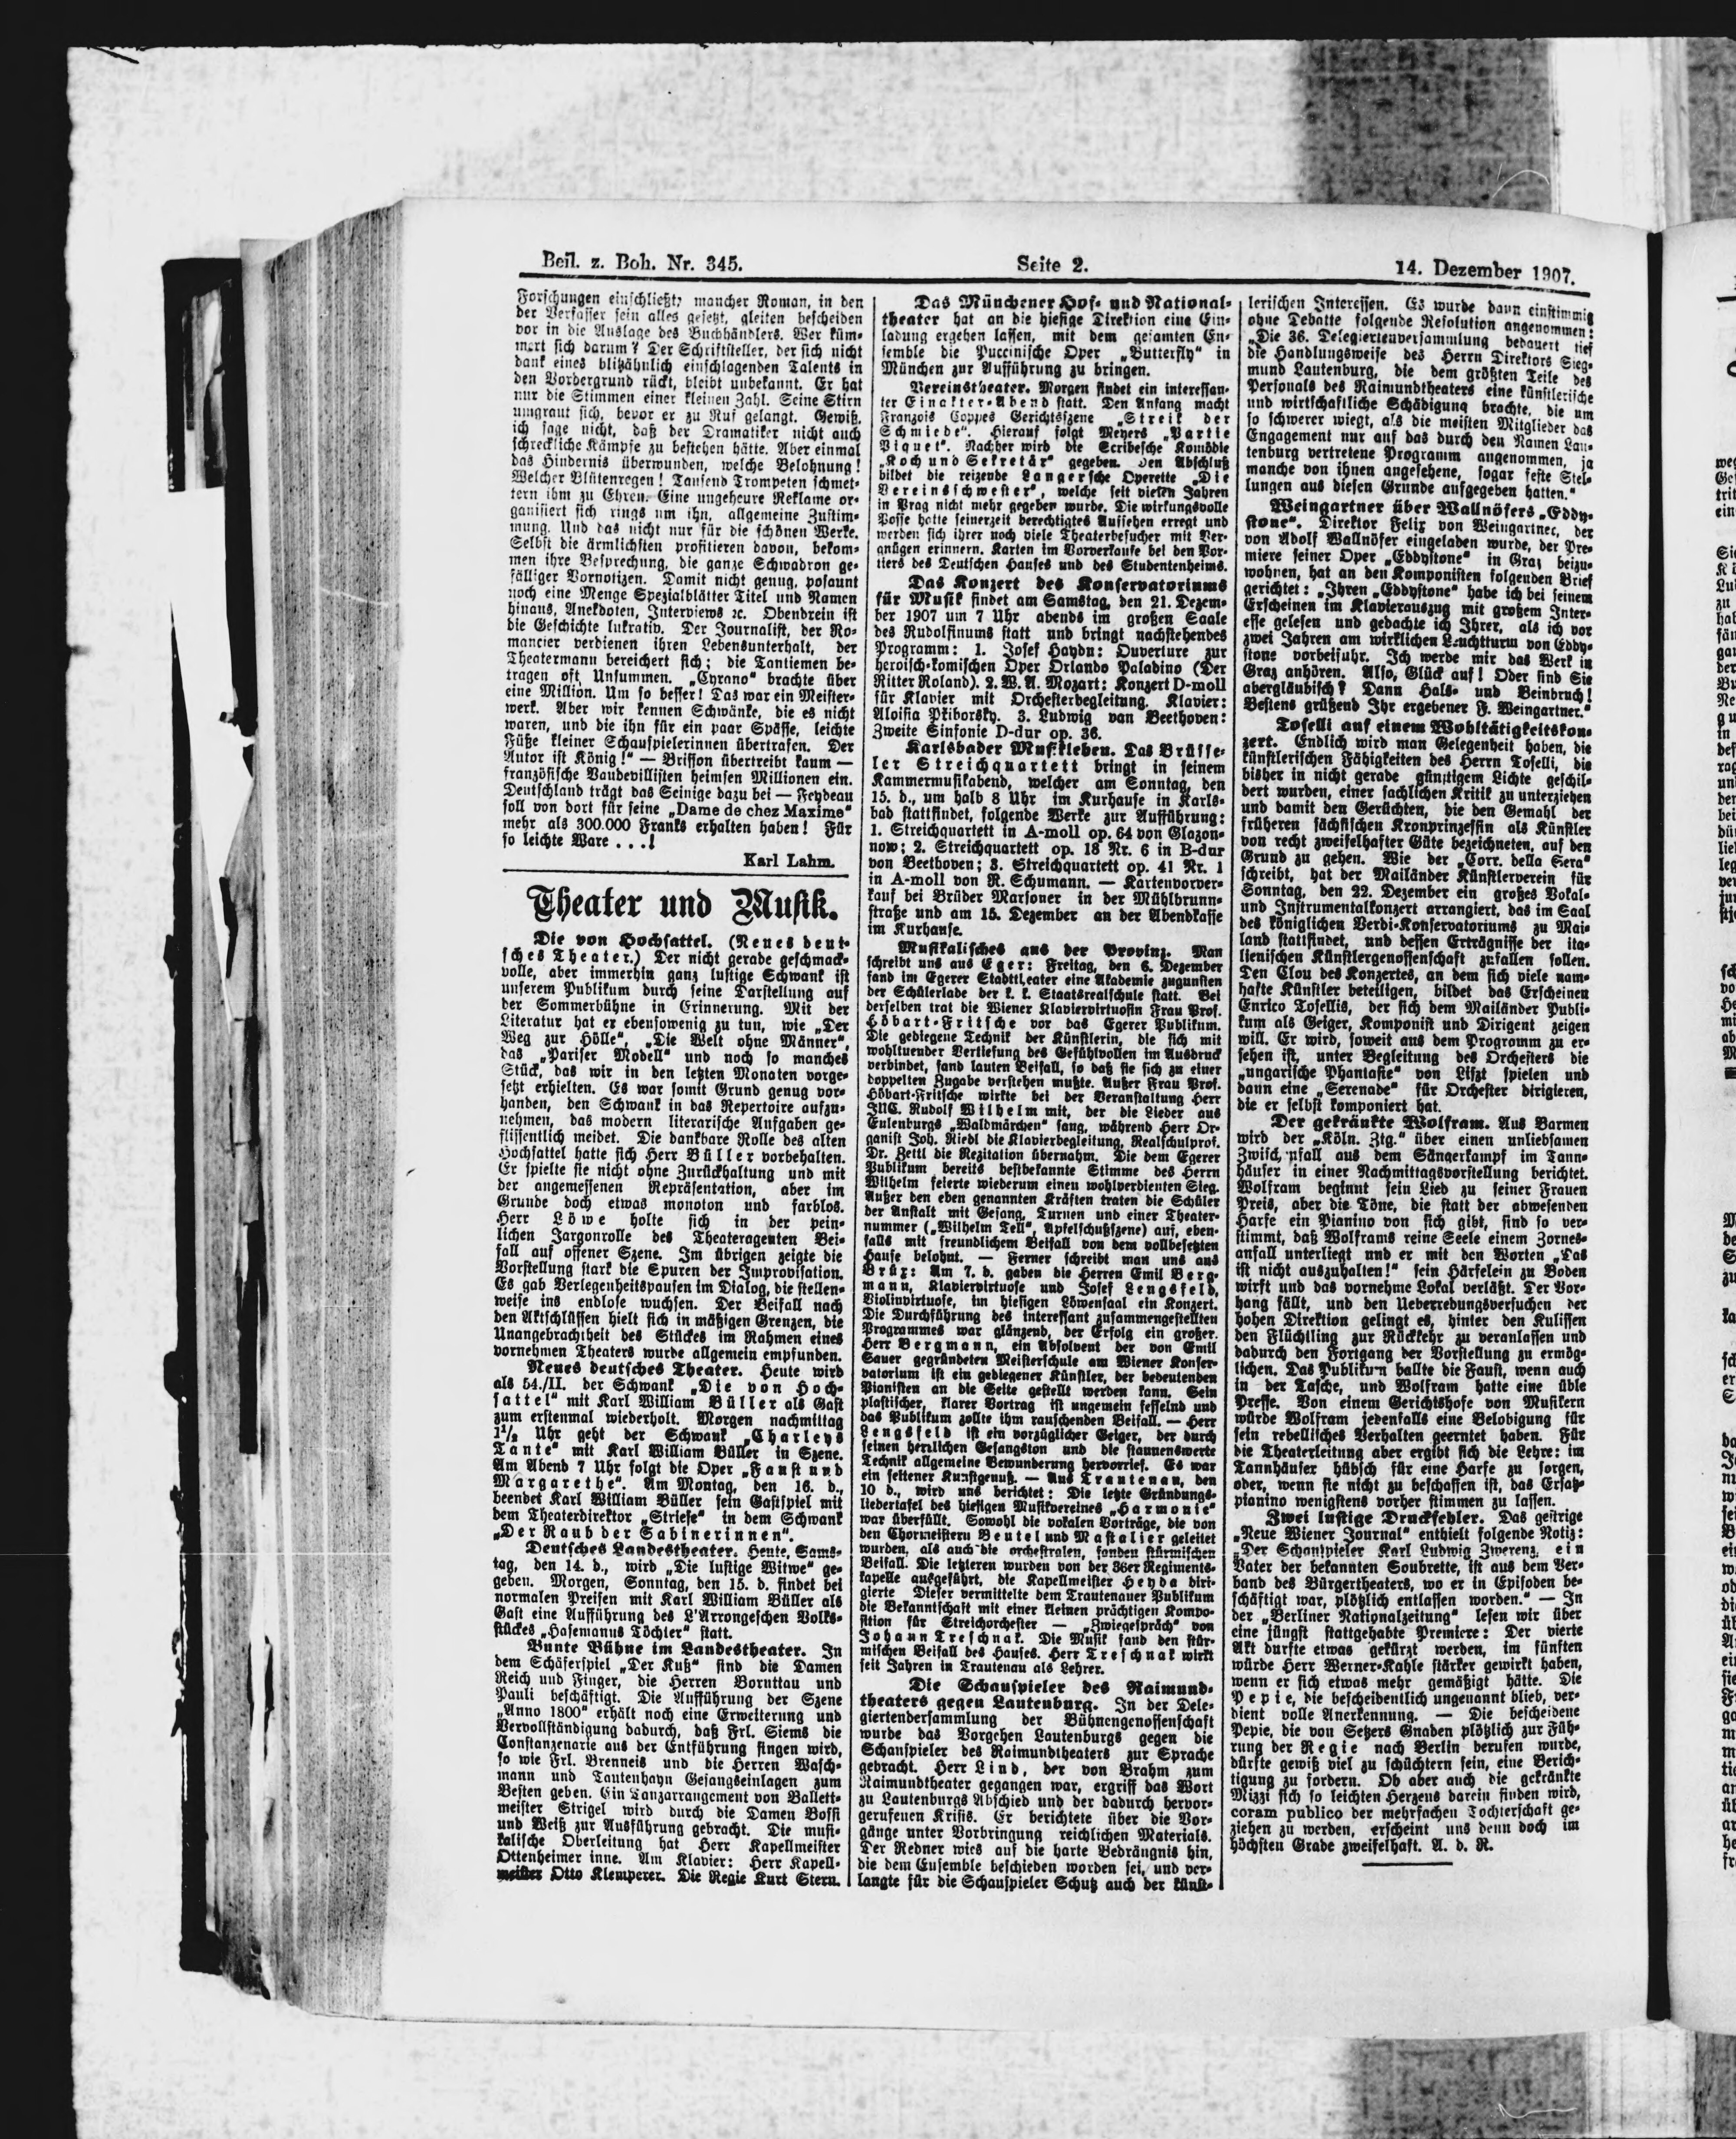 Beil. z. Boh. Nr. 345.
Seite 2.
14. Dezember 1907.
Forschungen einschließt, mancher Roman, in den
der Verfasser sein alles gesetzt, gleiten bescheiden
vor in die Auslage des Buchhändlers. Wer küm-
mert sich darum? Der Schriftsteller, der sich nicht
dank eines blitzähnlich einschlagenden Talents in
den Vordergrund rückt, bleibt unbekannt. Er hat
nur die Stimmen einer kleinen Zahl. Seine Stirn
umgraut sich, bevor er zu Ruf gelangt. Gewiß,
ich sage nicht, daß der Dramatiker nicht auch
schreckliche Kämpfe zu bestehen hätte. Aber einmal
das Hindernis überwunden, welche Belohnung!
Welcher Blütenregen! Tausend Trompeten schmet-
tern ihm zu Ehren. Eine ungeheure Reklame or-
ganisiert sich rings um ihn, allgemeine Zustim-
mung. Und das nicht nur für die schönen Werke.
Selbst die ärmlichsten profitieren davon, bekom-
men ihre Besprechung, die ganze Schwadron ge-
fälliger Vornotizen. Damit nicht genug, posaunt
noch eine Menge Spezialblätter Titel und Namen
hinaus, Anekdoten, Interviews ꝛc. Obendrein ist
die Geschichte lukrativ. Der Journalist, der Ro-
mancier verdienen ihren Lebensunterhalt, der
Theatermann bereichert sich; die Tantiemen be-
tragen oft Unsummen. „Cyrano“ brachte über
eine Million. Um so besser! Das war ein Meister-
werk. Aber wir kennen Schwänke, die es nicht
waren, und die ihn für ein paar Spässe, leichte
Füße kleiner Schauspielerinnen übertrafen. Der
Autor ist König!“ — Brisson übertreibt kaum —
französische Vaudevillisten heimsen Millionen ein.
Deutschland trägt das Seinige dazu bei — Feydeau
soll von dort für seine „Dame de chez Maxime“
mehr als 300.000 Franks erhalten haben! Für
so leichte Ware . . .!
Karl Lahm.
Theater und Musik.
Die von Hochsattel. (Neues deut-
sches Theater.) Der nicht gerade geschmack-
volle, aber immerhin ganz lustige Schwank ist
unserem Publikum durch seine Darstellung auf
der Sommerbühne in Erinnerung. Mit der
Literatur hat er ebensowenig zu tun, wie „Der
Weg zur Hölle“, „Die Welt ohne Männer“,
das „Pariser Modell“ und noch so manches
Stück, das wir in den letzten Monaten vorge-
setzt erhielten. Es war somit Grund genug vor-
handen, den Schwank in das Repertoire aufzu-
nehmen, das modern literarische Aufgaben ge-
flissentlich meidet. Die dankbare Rolle des alten
Hochsattel hatte sich Herr Büller vorbehalten.
Er spielte sie nicht ohne Zurückhaltung und mit
der angemessenen Repräsentation, aber im
Grunde doch etwas monoton und farblos.
Herr Löwe holte sich in der pein-
lichen Jargonrolle des Theateragenten Bei-
fall auf offener Szene. Im übrigen zeigte die
Vorstellung stark die Spuren der Improvisation.
Es gab Verlegenheitspausen im Dialog, die stellen-
weise ins endlose wuchsen. Der Beifall nach
den Aktschlüssen hielt sich in mäßigen Grenzen, die
Unangebrachtheit des Stückes im Rahmen eines
vornehmen Theaters wurde allgemein empfunden.
Neues deutsches Theater. Heute wird
als 54./II. der Schwank „Die von Hoch-
sattel“ mit Karl William Büller als Gast
zum erstenmal wiederholt. Morgen nachmittag
1½ Uhr geht der Schwank „Charleys
Tante“ mit Karl William Büller in Szene.
Am Abend 7 Uhr folgt die Oper „Faust und
Margarethe“. Am Montag, den 16. d.,
beendet Karl William Büller sein Gastspiel mit
dem Theaterdirektor „Striese“ in dem Schwank
„Der Raub der Sabinerinnen“.
Deutsches Landestheater. Heute, Sams-
tag, den 14. d., wird „Die lustige Witwe“ ge-
geben. Morgen, Sonntag, den 15. d. findet bei
normalen Preisen mit Karl William Büller als
Gast eine Aufführung des L'Arrongeschen Volks-
stückes „Hasemanns Töchter“ statt.
Bunte Bühne im Landestheater. In
dem Schäferspiel „Der Kuß“ sind die Damen
Reich und Finger, die Herren Bornttau und
Pauli beschäftigt. Die Aufführung der Szene
„Anno 1800“ erhält noch eine Erweiterung und
Vervollständigung dadurch, daß Frl. Siems die
Constanzenarie aus der Entführung singen wird,
so wie Frl. Brenneis und die Herren Wasch-
mann und Tautenhayn Gesangseinlagen zum
Besten geben. Ein Tanzarrangement von Ballett-
meister Strigel wird durch die Damen Bossi
und Weiß zur Ausführung gebracht. Die musi-
kalische Oberleitung hat Herr Kapellmeister
Ottenheimer inne. Am Klavier: Herr Kapell-
meister Otto Klemperer. Die Regie Kurt Stern.
Das Münchener Hof- und National-
theater hat an die hiesige Direktion eine Ein-
ladung ergehen lassen, mit dem gesamten En-
semble die Puccinische Oper „Butterfly“ in
München zur Aufführung zu bringen.
Vereinstheater. Morgen findet ein interessan-
ter Einakter-Abend statt. Den Anfang macht
François Coppes Gerichtsszene „Streik der
Schmiede“. Hierauf folgt Meyers „Partie
Piquet“. Nachher wird die Scribesche Komödie
„Koch und Sekretär“ gegeben. Den Abschluß
bildet die reizende Langersche Operette „Die
Vereinsschwester“, welche seit vielen Jahren
in Prag nicht mehr gegeben wurde. Die wirkungsvolle
Posse hatte seinerzeit berechtigtes Aufsehen erregt und
werden sich ihrer noch viele Theaterbesucher mit Ver-
gnügen erinnern. Karten im Vorverkaufe bei den Por-
tiers des Deutschen Hauses und des Studentenheims.
Das Konzert des Konservatoriums
für Musik findet am Samstag, den 21. Dezem-
ber 1907 um 7 Uhr abends im großen Saale
des Rudolfinums statt und bringt nachstehendes
Programm: 1. Josef Haydn: Ouverture zur
heroisch-komischen Oper Orlando Paladino (Der
Ritter Roland). 2. W. A. Mozart: Konzert D-moll
für Klavier mit Orchesterbegleitung. Klavier:
Aloisia Přiborsky. 3. Ludwig van Beethoven:
Zweite Sinfonie D-dur op. 36.
Karlsbader Musikleben. Das Brüsse-
ler Streichquartett bringt in seinem
Kammermusikabend, welcher am Sonntag, den
15. d., um halb 8 Uhr im Kurhause in Karls-
bad stattfindet, folgende Werke zur Aufführung:
1. Streichquartett in A-moll op. 64 von Glazon-
now; 2. Streichquartett op. 18 Nr. 6 in B-dur
von Beethoven; 3. Streichquartett op. 41 Nr. 1
in A-moll von R. Schumann. — Kartenvorver-
kauf bei Brüder Marsoner in der Mühlbrunn-
straße und am 15. Dezember an der Abendkasse
im Kurhause.
Musikalisches aus der Provinz. Man
schreibt uns aus Eger: Freitag, den 6. Dezember
fand im Egerer Stadttheater eine Akademie zugunsten
der Schülerlade der k. k. Staatsrealschule statt. Bei
derselben trat die Wiener Klaviervirtuosin Frau Prof.
Höbart-Fritsche vor das Egerer Publikum.
Die gediegene Technik der Künstlerin, die sich mit
wohltuender Vertiefung des Gefühlvollen im Ausdruck
verbindet, fand lauten Beifall, so daß sie sich zu einer
doppelten Zugabe verstehen mußte. Außer Frau Prof.
Höbart-Fritsche wirkte bei der Veranstaltung Herr
JUC. Rudolf Wilhelm mit, der die Lieder aus
Eulenburgs „Waldmärchen“ sang, während Herr Or-
ganist Joh. Riedl die Klavierbegleitung, Realschulprof.
Dr. Zettl die Rezitation übernahm. Die dem Egerer
Publikum bereits bestbekannte Stimme des Herrn
Wilhelm feierte wiederum einen wohlverdienten Sieg.
Außer den eben genannten Kräften traten die Schüler
der Anstalt mit Gesang, Turnen und einer Theater-
nummer („Wilhelm Tell“, Apfelschußszene) auf, eben-
falls mit freundlichem Beifall von dem vollbesetzten
Hause belohnt. — Ferner schreibt man uns aus
Brüx: Am 7. d. gaben die Herren Emil Berg-
mann, Klaviervirtuose und Josef Lengsfeld,
Violinvirtuose, im hiesigen Löwensaal ein Konzert.
Die Durchführung des interessant zusammengestellten
Programmes war glänzend, der Erfolg ein großer.
Herr Bergmann, ein Absolvent der von Emil
Sauer gegründeten Meisterschule am Wiener Konser-
vatorium ist ein gediegener Künstler, der bedeutenden
Pianisten an die Seite gestellt werden kann. Sein
plastischer, klarer Vortrag ist ungemein fesselnd und
das Publikum zollte ihm rauschenden Beifall. — Herr
Lengsfeld ist ein vorzüglicher Geiger, der durch
seinen herrlichen Gesangston und die staunenswerte
Technik allgemeine Bewunderung hervorrief. Es war
ein seltener Kunstgenuß. — Aus Trautenau, den
10 d., wird uns berichtet: Die letzte Gründungs-
liedertafel des hiesigen Musikvereines „Harmonie“
war überfüllt. Sowohl die vokalen Vorträge, die von
den Chormeistern Beutel und Mastalier geleitet
wurden, als auch die orchestralen, fanden stürmischen
Beifall. Die letzteren wurden von der 36er Regiments-
kapelle ausgeführt, die Kapellmeister Heyda diri-
gierte Dieser vermittelte dem Trautenauer Publikum
die Bekanntschaft mit einer kleinen prächtigen Kompo-
sition für Streichorchester — „Zwiegespräch“ von
Johann Treschnak. Die Musik fand den stür-
mischen Beifall des Hauses. Herr Treschnak wirkt
seit Jahren in Trautenau als Lehrer.
Die Schauspieler des Raimund-
theaters gegen Lautenburg. In der Dele-
giertenversammlung der Bühnengenossenschaft
wurde das Vorgehen Lautenburgs gegen die
Schauspieler des Raimundtheaters zur Sprache
gebracht. Herr Lind, der von Brahm zum
Raimundtheater gegangen war, ergriff das Wort
zu Lautenburgs Abschied und der dadurch hervor-
gerufenen Krisis. Er berichtete über die Vor-
gänge unter Vorbringung reichlichen Materials.
Der Redner wies auf die harte Bedrängnis hin,
die dem Ensemble beschieden worden sei, und ver-
langte für die Schauspieler Schutz auch der künst-
lerischen Interessen. Es wurde dann einstimmig
ohne Debatte folgende Resolution angenommen:
„Die 36. Delegiertenversammlung bedauert tief
die Handlungsweise des Herrn Direktors Sieg-
mund Lautenburg, die dem größten Teile des
Personals des Raimundtheaters eine künstlerische
und wirtschaftliche Schädigung brachte, die um
so schwerer wiegt, als die meisten Mitglieder das
Engagement nur auf das durch den Namen Lau-
tenburg vertretene Programm angenommen, ja
manche von ihnen angesehene, sogar feste Stel-
lungen aus diesen Grunde aufgegeben hatten.“
Weingartner über Wallnöfers „Eddy-
stone“. Direktor Felix von Weingartner, der
von Adolf Wallnöfer eingeladen wurde, der Pre-
miere seiner Oper „Eddystone“ in Graz beizu-
wohnen, hat an den Komponisten folgenden Brief
gerichtet: „Ihren „Eddystone“ habe ich bei seinem
Erscheinen im Klavierauszug mit großem Inter-
esse gelesen und gedachte ich Ihrer, als ich vor
zwei Jahren am wirklichen Leuchtturm von Eddy-
stone vorbeifuhr. Ich werde mir das Werk in
Graz anhören. Also, Glück auf! Oder sind Sie
abergläubisch? Dann Hals- und Beinbruch!
Bestens grüßend Ihr ergebener F. Weingartner.“
Toselli auf einem Wohltätigkeitskon-
zert. Endlich wird man Gelegenheit haben, die
künstlerischen Fähigkeiten des Herrn Toselli, die
bisher in nicht gerade günstigem Lichte geschil-
dert wurden, einer sachlichen Kritik zu unterziehen
und damit den Gerüchten, die den Gemahl der
früheren sächsischen Kronprinzessin als Künstler
von recht zweifelhafter Güte bezeichneten, auf den
Grund zu gehen. Wie der „Corr. della Sera“
schreibt, hat der Mailänder Künstlerverein für
Sonntag, den 22. Dezember ein großes Vokal-
und Instrumentalkonzert arrangiert, das im Saal
des königlichen Verdi-Konservatoriums zu Mai-
land stattfindet, und dessen Erträgnisse der ita-
lienischen Künstlergenossenschaft zufallen sollen.
Den Clou des Konzertes, an dem sich viele nam-
hafte Künstler beteiligen, bildet das Erscheinen
Enrico Tosellis, der sich dem Mailänder Publi-
kum als Geiger, Komponist und Dirigent zeigen
will. Er wird, soweit aus dem Programm zu er-
sehen ist, unter Begleitung des Orchesters die
„ungarische Phantasie“ von Liszt spielen und
dann eine „Serenade“ für Orchester dirigieren,
die er selbst komponiert hat.
Der gekränkte Wolfram. Aus Barmen
wird der „Köln. Ztg.“ über einen unliebsamen
Zwischenfall aus dem Sängerkampf im Tann-
häuser in einer Nachmittagsvorstellung berichtet.
Wolfram beginnt sein Lied zu seiner Frauen
Preis, aber die Töne, die statt der abwesenden
Harfe ein Pianino von sich gibt, sind so ver-
stimmt, daß Wolframs reine Seele einem Zornes-
anfall unterliegt und er mit den Worten „Das
ist nicht auszuhalten!“ sein Härfelein zu Boden
wirft und das vornehme Lokal verläßt. Der Vor-
hang fällt, und den Ueberredungsversuchen der
hohen Direktion gelingt es, hinter den Kulissen
den Flüchtling zur Rückkehr zu veranlassen und
dadurch den Fortgang der Vorstellung zu ermög-
lichen. Das Publikum ballte die Faust, wenn auch
in der Tasche, und Wolfram hatte eine üble
Presse. Von einem Gerichtshofe von Musikern
würde Wolfram jedenfalls eine Belobigung für
sein rebellisches Verhalten geerntet haben. Für
die Theaterleitung aber ergibt sich die Lehre: im
Tannhäuser hübsch für eine Harfe zu sorgen,
oder, wenn sie nicht zu beschaffen ist, das Ersatz-
pianino wenigstens vorher stimmen zu lassen.
Zwei lustige Druckfehler. Das gestrige
„Neue Wiener Journal“ enthielt folgende Notiz:
„Der Schauspieler Karl Ludwig Zwerenz, ein
Vater der bekannten Soubrette, ist aus dem Ver-
band des Bürgertheaters, wo er in Episoden be-
schäftigt war, plötzlich entlassen worden.“ — In
der „Berliner Nationalzeitung“ lesen wir über
eine jüngst stattgehabte Premiere: Der vierte
Akt durfte etwas gekürzt werden, im fünften
würde Herr Werner-Kahle stärker gewirkt haben,
wenn er sich etwas mehr gemäßigt hätte. Die
Pepie, die bescheidentlich ungenannt blieb, ver-
dient volle Anerkennung. — Die bescheidene
Pepie, die von Setzers Gnaden plötzlich zur Füh-
rung der Regie nach Berlin berufen wurde,
dürfte gewiß viel zu schüchtern sein, eine Berich-
tigung zu fordern. Ob aber auch die gekränkte
Mizzi sich so leichten Herzens darein finden wird,
coram publico der mehrfachen Tochterschaft ge-
ziehen zu werden, erscheint uns denn doch im
höchsten Grade zweifelhaft. A. d. R.